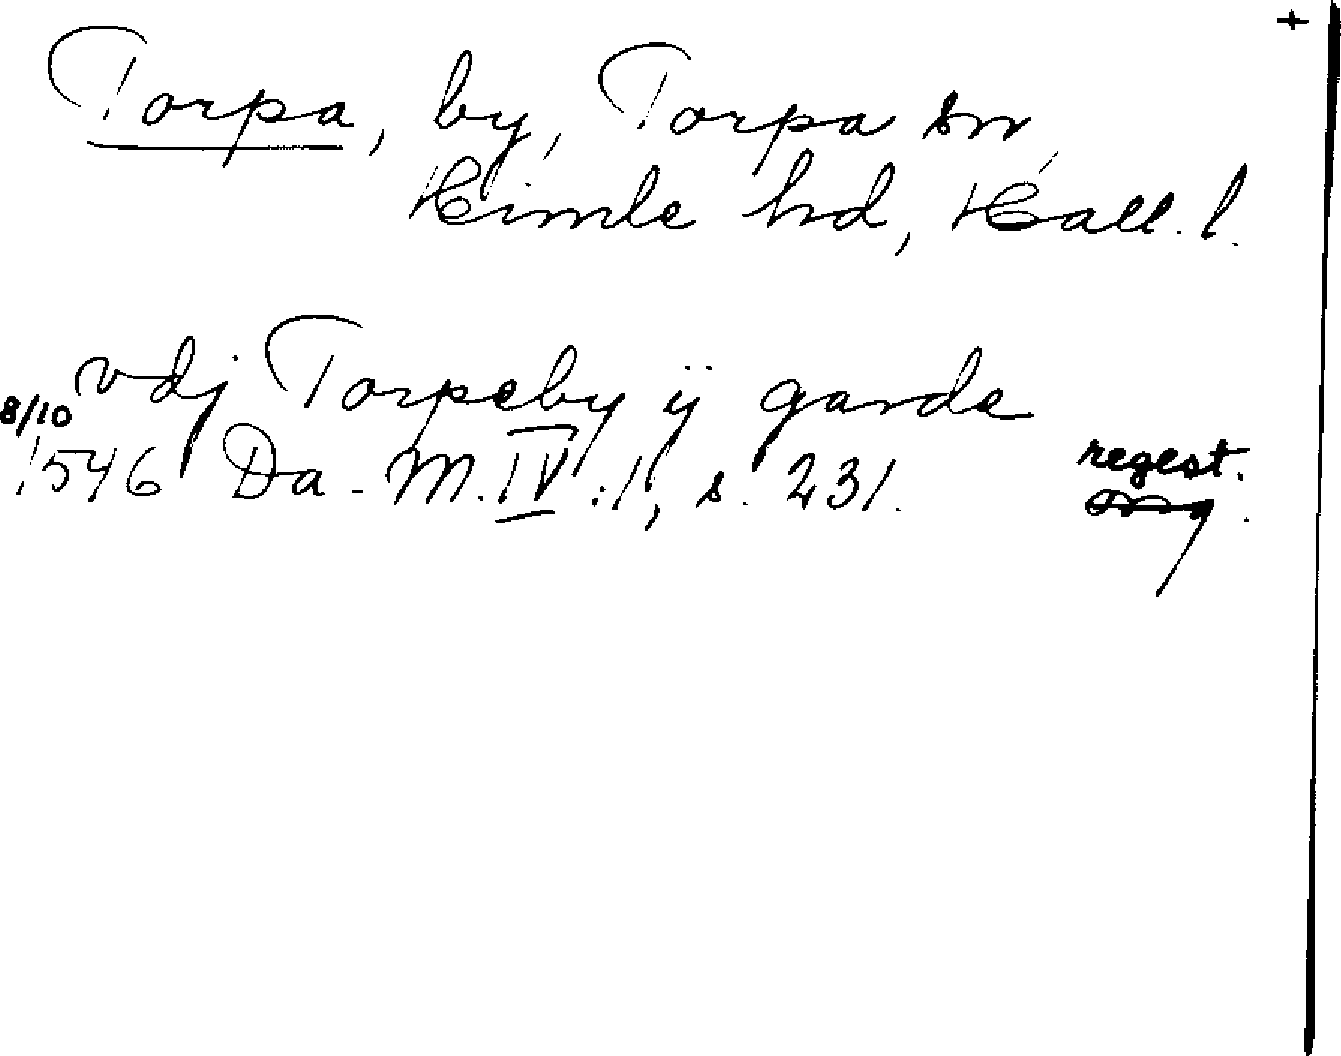 +
Torpa, by, Torpa sn,
Himle hd, Hall. l.
vdj Torpeby ij garde
8/10
1546 Da. M. IV:1, s. 231.
regest.